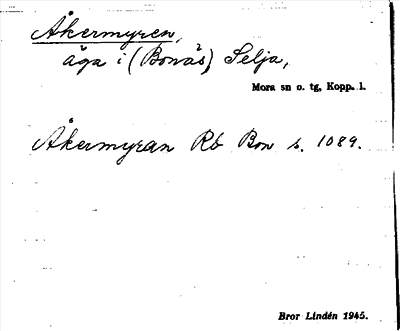 Åkermyren,
äga i (Bonäs) Selja,
Mora sn o. tg, Kopp. l.
Åkermyran Rb Bon s. 1089.
Bror Lindén 1945.